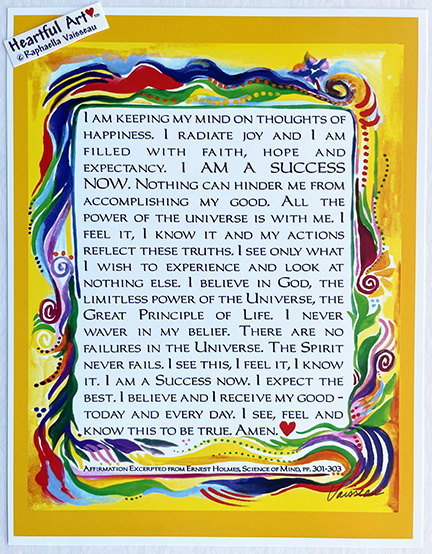 Heartful Art™
© Raphaella Vaisseau
I AM KEEPING MY MIND ON THOUGHTS OF
HAPPINESS. I RADIATE JOY AND I AM
FILLED WITH FAITH, HOPE AND
EXPECTANCY. I AM A SUCCESS
NOW. NOTHING CAN HINDER ME FROM
ACCOMPLISHING MY GOOD. ALL THE
POWER OF THE UNIVERSE IS WITH ME. I
FEEL IT, I KNOW IT AND MY ACTIONS
REFLECT THESE TRUTHS. I SEE ONLY WHAT
I WISH TO EXPERIENCE AND LOOK AT
NOTHING ELSE. I BELIEVE IN GOD, THE
LIMITLESS POWER OF THE UNIVERSE, THE
GREAT PRINCIPLE OF LIFE. I NEVER
WAVER IN MY BELIEF. THERE ARE NO
FAILURES IN THE UNIVERSE. THE SPIRIT
NEVER FAILS. I SEE THIS, I FEEL IT, I KNOW
IT. I AM A SUCCESS NOW. I EXPECT THE
BEST. I BELIEVE AND I RECEIVE MY GOOD -
TODAY AND EVERY DAY. I SEE, FEEL AND
KNOW THIS TO BE TRUE. AMEN.
AFFIRMATION EXCERPTED FROM ERNEST HOLMES, SCIENCE OF MIND, PP. 301-303
Vaisseau